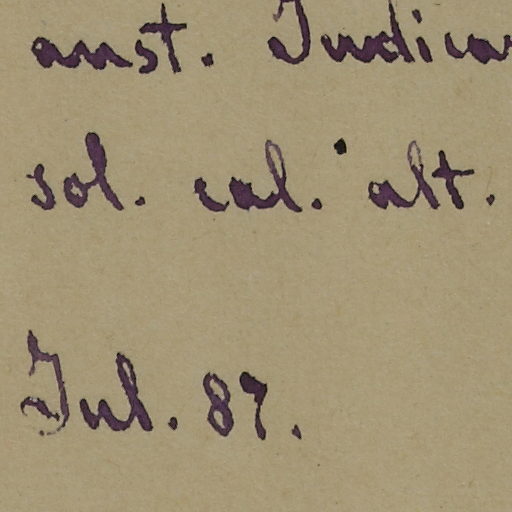 aust. Judicar
sol. cal. alt.
Jul. 87.